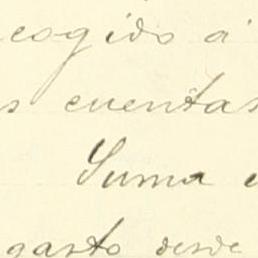 cogido á
s cuentas
Suma
gasto desde